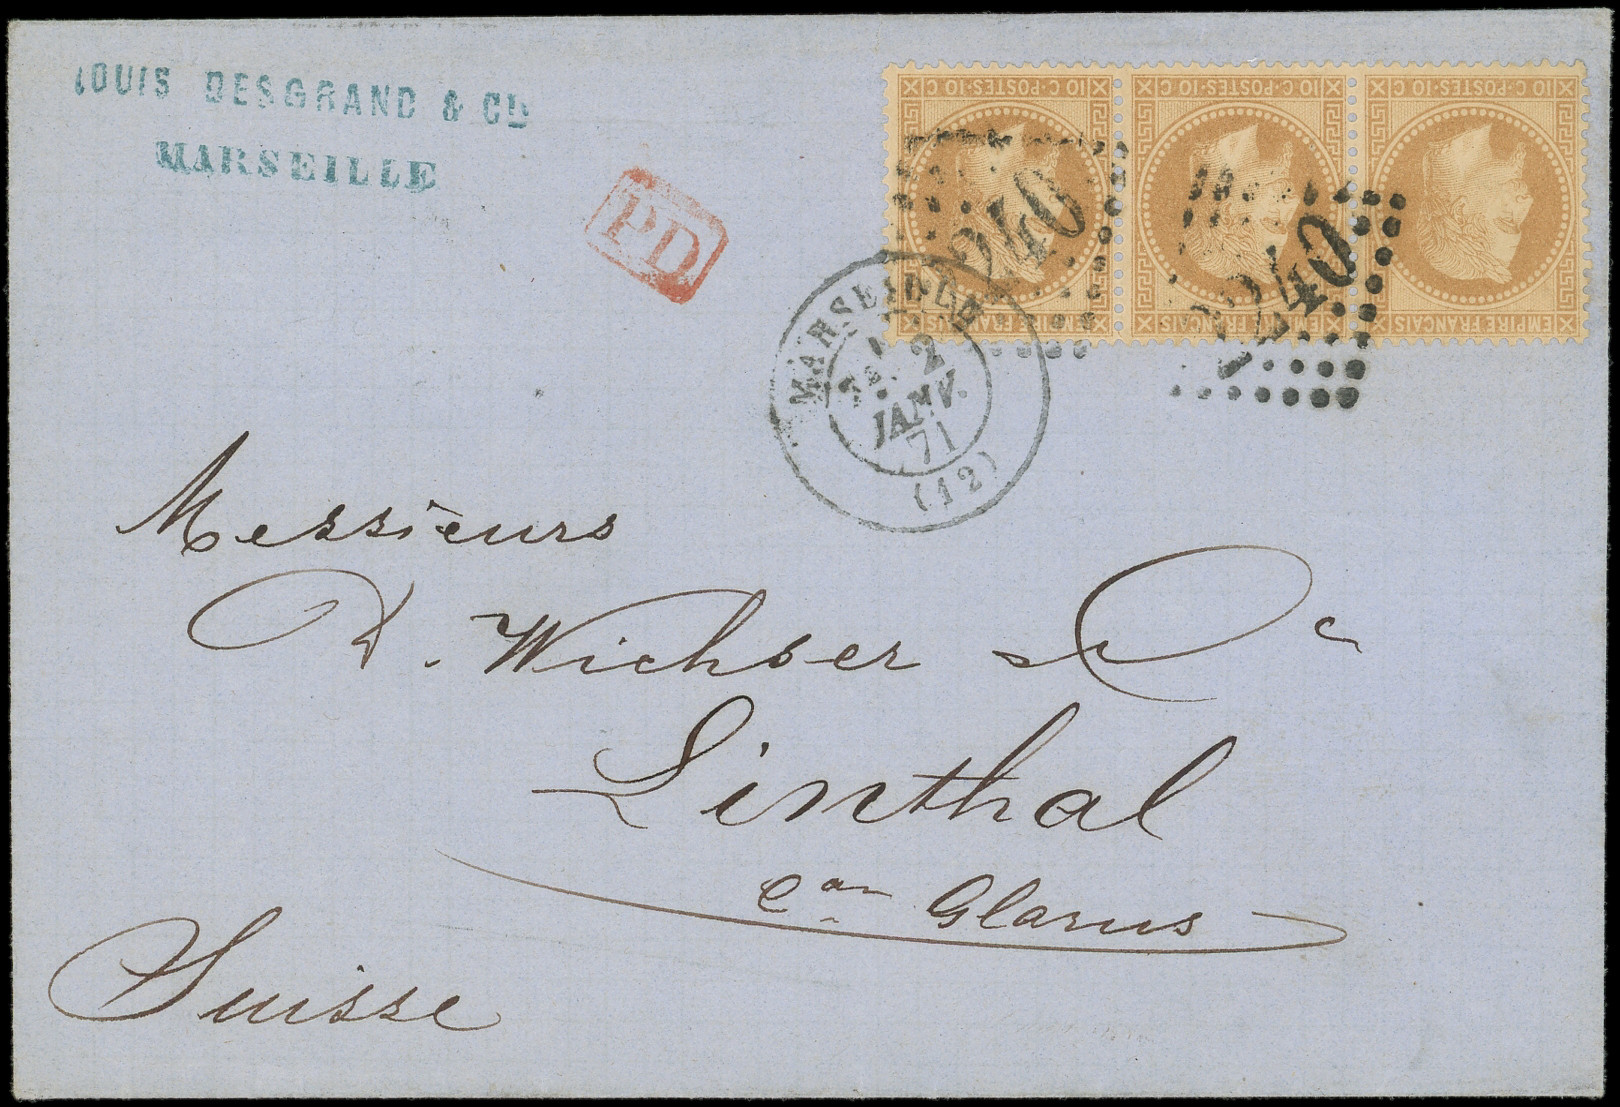 LOUIS DESGRAND & CIE
MARSEILLE
PD
10 C · POSTES · 10 C
EMPIRE FRANÇAIS
10 C · POSTES · 10 C
EMPIRE FRANÇAIS
10 C · POSTES · 10 C
EMPIRE FRANÇAIS
2240
2240
MARSEILLE
2
JANV.
71
(12)
Messieurs
D. Wichser & Ce
Linthal
Can Glarus
Suisse